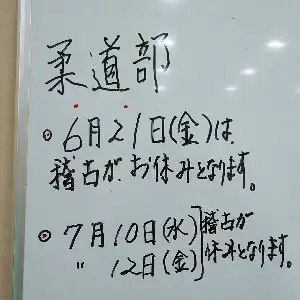 柔道部
◎6月21日(金)は、
稽古がお休みとなります。
◎7月10日(水)稽古が
〃12日(金)休みとなります。